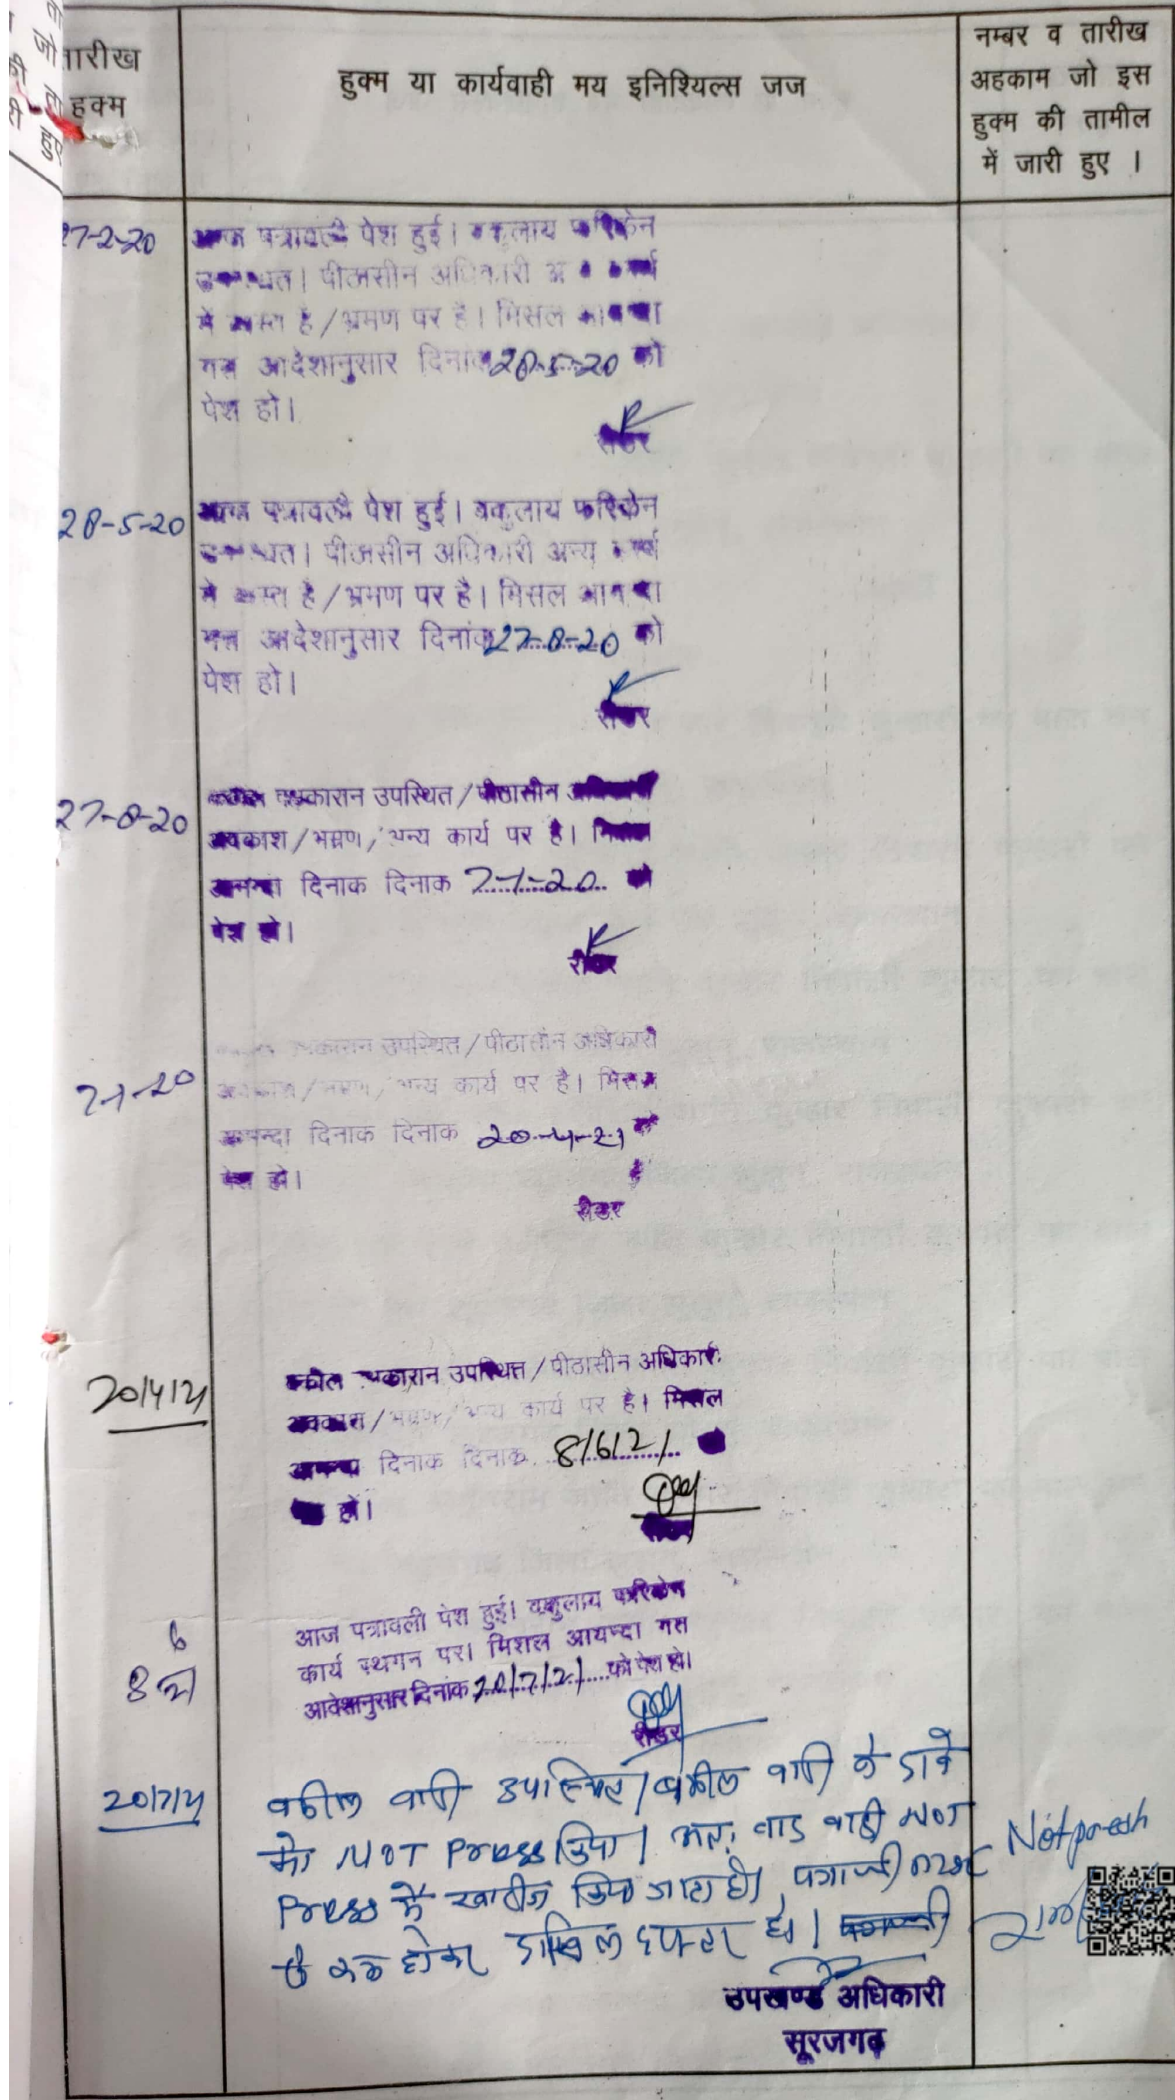 तारीख
हुक्म
हुक्म या कार्यवाही मय इनिश्यिल्स जज
नम्बर व तारीख
अहकाम जो इस
हुक्म की तामील
में जारी हुए ।
27-2-20
आज पत्रावली पेश हुई। वकुलाय फरिकेन
उपस्थत। पीठासीन अधिकारी अन्य कार्य
में व्यस्त है/भ्रमण पर है। मिसल
आदेशानुसार दिनांक 28-5-20 को
पेश हो।
रीडर
28-5-20
आज पत्रावली पेश हुई। वकुलाय फरिकेन
उपस्थत। पीठासीन अधिकारी अन्य कार्य
में व्यस्त है/भ्रमण पर है। मिसल
आदेशानुसार दिनांक 27-8-20 को
पेश हो।
रीडर
27-8-20
पक्षकारान उपस्थित/पीठासीन अधिकारी
अवकाश/भम्रण/अन्य कार्य पर है। मिसल
आयन्दा दिनाक दिनाक 7-1-20 को
पेश हो।
रीडर
7-1-20
उपस्थित/पीठासीन अधिकारी
अवकाश/भम्रण/अन्य कार्य पर है। मिसल
आयन्दा दिनाक दिनाक 20-4-21 को
पेश हो।
रीडर
20/4/21
वकील पक्षकारान उपस्थित/पीठासीन अधिकारी
अवकाश/भम्रण/अन्य कार्य पर है। मिसल
आयन्दा दिनाक दिनाक 8/6/21
हो।
8/6/21
आज पत्रावली पेश हुई। वकुलाय फरिकेन
कार्य स्थगन पर। मिशल आयन्दा गत
आदेशानुसार दिनांक 20/7/21 को पेश हो।
रीडर
20/7/21
वकील वादी उपस्थित/वकील वादी ने दावे
को NOT Press किया। अतः वाद वादी NOT
Press में खारीज किया जाता है। पत्रावली नम्बर
से कम होकर दाखिल दफ्तर हो।
Not press
उपखण्ड अधिकारी
सूरजगढ़